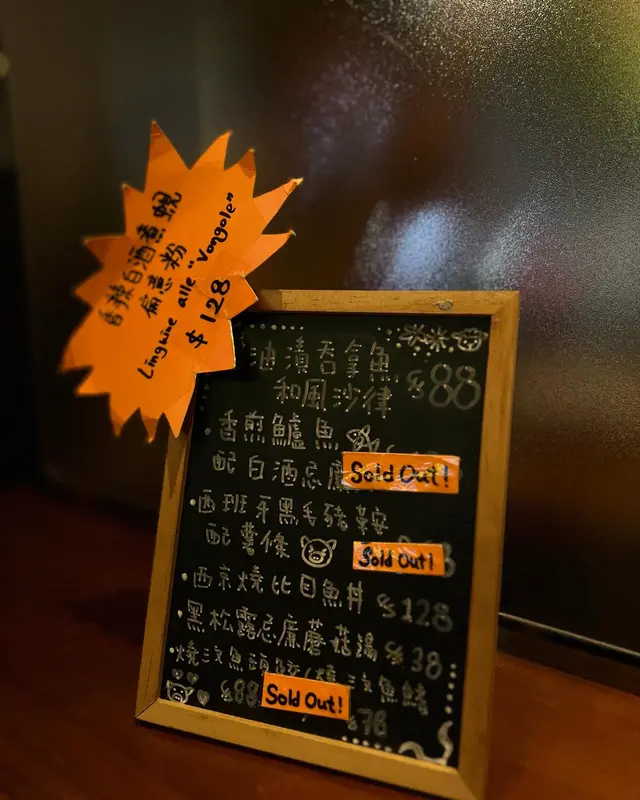 香辣白酒煮蜆
扁意粉
Linguine alle "Vongole"
$128
油漬吞拿魚
和風沙律 $88
•香煎鱸魚
配白酒忌廉 Sold Out!
•西班牙黑毛豬鞍
配薯條 Sold Out!
•西京燒比目魚丼 $128
•黑松露忌廉蘑菇湯 $38
•燒 魚頭 魚鰭
$88 Sold Out! $78